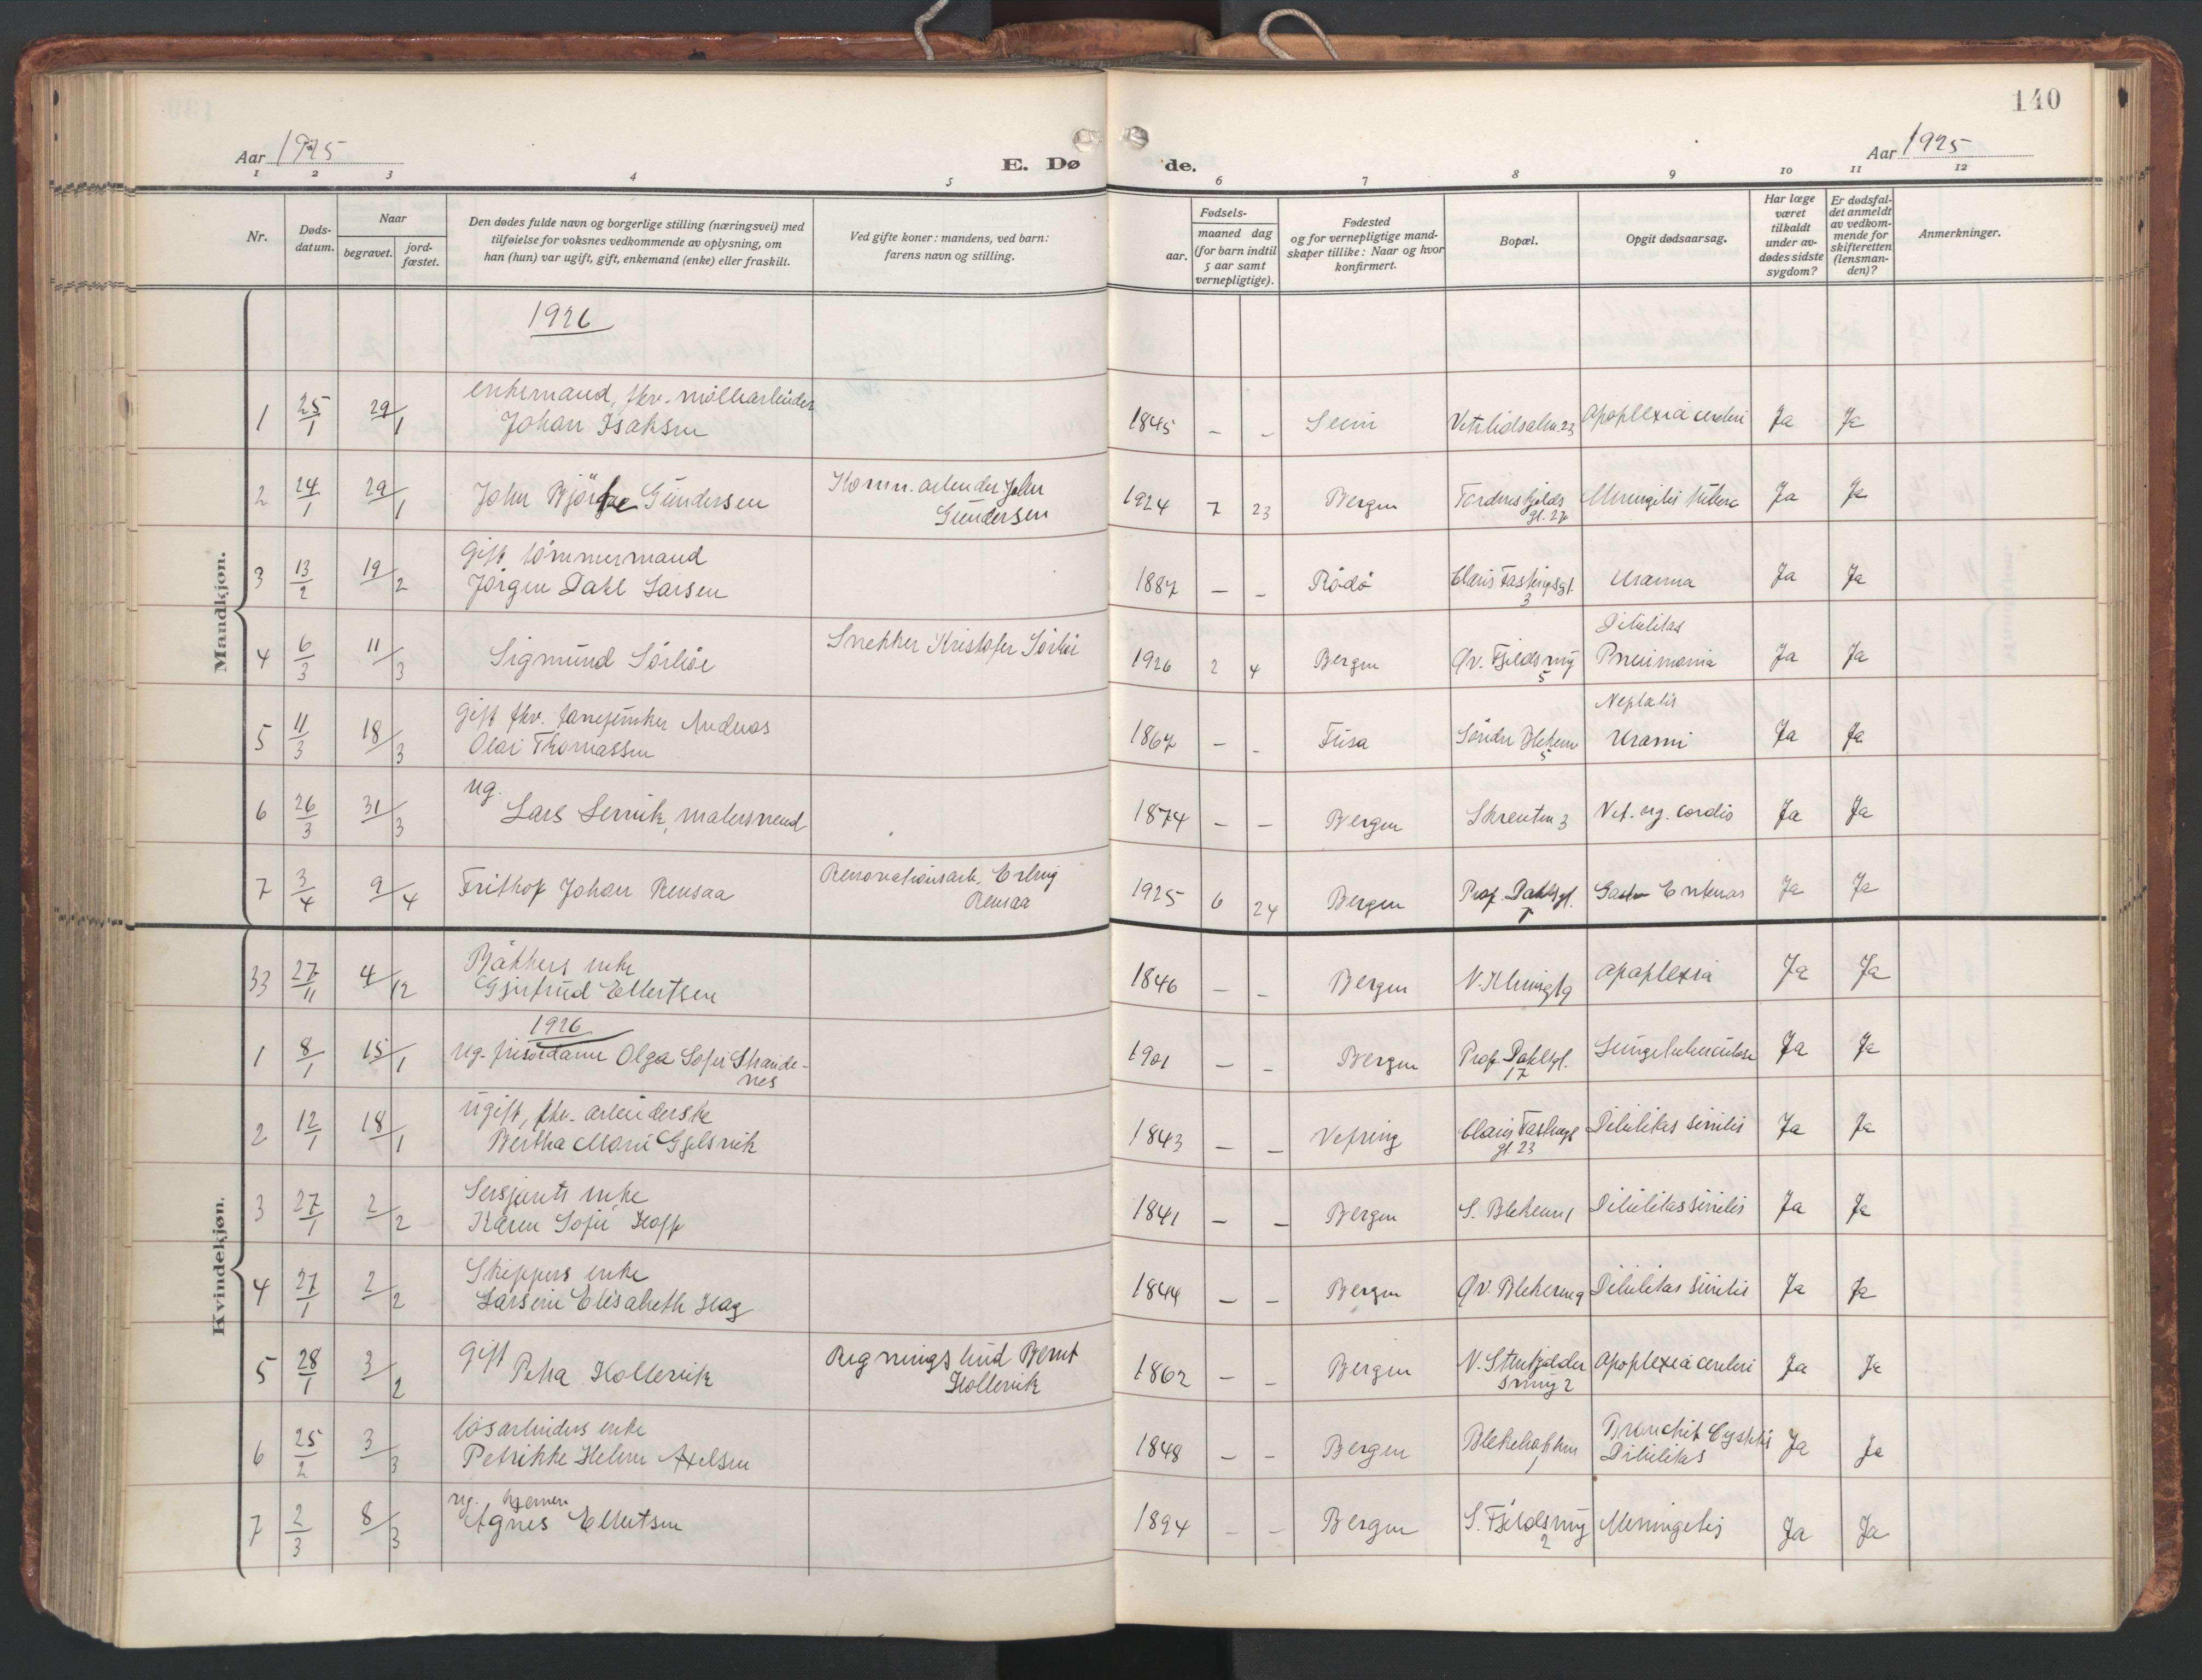 140
Aar 1925
E. Døde.
Aar 1925
1 2 3 4 5 6 7 8 9 10 11 12
Nr.
Døds-datum.
Naar
begravet.
jord-fæstet.
Den dødes fulde navn og borgerlige stilling (næringsvei) med
tilføielse for voksnes vedkommende av oplysning, om
han (hun) var ugift, gift, enkemand (enke) eller fraskilt.
Ved gifte koner: mandens, ved barn:
farens navn og stilling.
Fødsels-
aar. maaned dag
(for barn indtil
5 aar samt
vernepligtige).
Fødested
og for vernepligtige mand-
skaper tillike: Naar og hvor
konfirmert.
Bopæl.
Opgit dødsaarsag.
Har læge
været
tilkaldt
under av-
dødes sidste
sygdom?
Er dødsfal-
det anmeldt
av vedkom-
mende for
skifteretten
(lensman-
den)?
Anmerkninger.
Mandkjøn.
1926
enkemand, fhv. møllearbeider
1 25/1 29/1 Johan Isaksen 1845 – – Seim Vetrlidsalm. 23 Apoplexia cerebri Ja Ja
2 24/1 29/1 John Bjarne Gundersen Komm. arbeider John
Gundersen 1924 7 23 Bergen Tordenskjolds
gt. 27 Meningitis tuberc Ja Ja
gift tømmermand
3 13/2 19/2 Jørgen Dahl Larsen 1887 – – Rødø Claus Fastingsgt.
3 Uræmia Ja Ja
4 6/3 11/3 Sigmund Sørlie Snekker Kristofer Sørlie 1926 2 4 Bergen Øv. Fjeldsmug
5 Debilitas
Pneumonia Ja Ja
gift fhv. Andreas
5 11/3 18/3 Olai Thomassen 1867 – – Fusa Søndre Blekevei
5 Uræmi Ja Ja
ug.
6 26/3 31/3 Lars Lervik, malersvend 1874 – – Bergen Skreuten 3 Vit. org. cordis Ja Ja
7 3/4 9/4 Frithof Johan Rensaa Renovationsarb. Erling
Rensaa 1925 6 24 Bergen Prof. Dahlsgt. Gastro Enteritis Ja Ja
Kvindekjøn.
Bøkkers enke
33 27/11 4/12 Gjertrud Ellertsen 1846 – – Bergen Apoplexia Ja Ja
1926
1 8/1 15/1 ug. frisørdame Olga Sofie Strande-
nes 1901 – – Bergen Prof. Dahlsgt.
17 Lungetuberculose Ja Ja
ugift, fhv. arbeiderske
2 12/1 18/1 Bertha Marie Gjelsvik 1843 – – Vefring Claus Fastings
gt. 23 Debilitas senilis Ja Ja
Sersjants enke
3 27/1 2/2 Karen Sofie Hoff 1841 – – Bergen S. Blekevei 1 Debilitas senilis Ja Ja
Skippers enke
4 27/1 2/2 Larsine Elisabeth Hag 1844 – – Bergen Øv. Blekevei 9 Debilitas senilis Ja Ja
gift
5 28/1 3/2 Petra Kollevik Bygningssnekker Bernt
Kollevik 1862 – – Bergen N. Stenkjelder
smug 2 Apoplexia cerebri Ja Ja
løsarbeiders enke
6 25/2 3/3 Petrikke Helene Axelsen 1848 – – Bergen Debilitas Ja Ja
ug. hjemmev.
7 2/3 8/3 Agnes Ellertsen 1894 – – Bergen S. Fjeldsmug
2 Meningitis Ja Ja